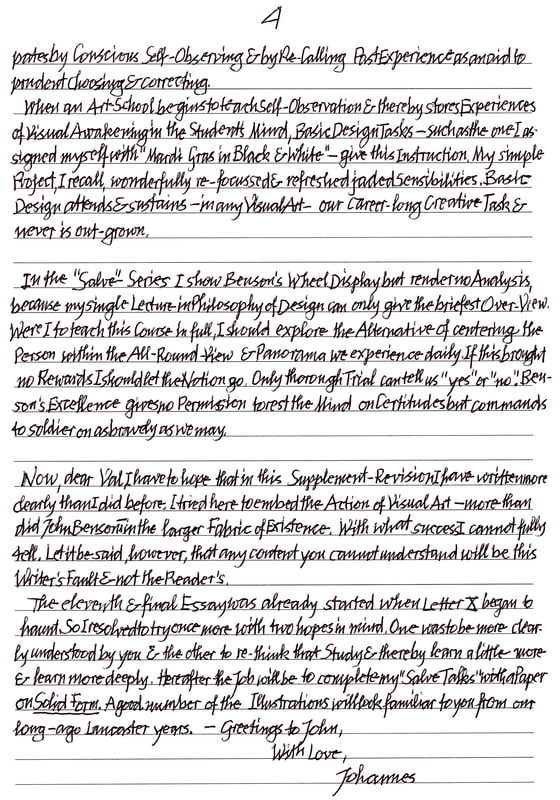 4
pates by Conscious Self-Observing & by Re-Calling Past Experience as an aid to
prudent choosing & correcting.
When an Art-School begins to teach Self-Observation & thereby stores Experiences
of Visual Awakening in the Student's Mind, Basic Design Tasks – such as the one I as-
signed myself with "Mardi Gras in Black & White" – give this Instruction. My simple
Project, I recall, wonderfully re-focussed & refreshed jaded Sensibilities. Basic
Design attends & sustains – in any Visual Art – our Career-long Creative Task &
never is out-grown.
In the "Salve" Series I show Benson's Wheel Display but render no Analysis,
because my single Lecture in Philosophy of Design can only give the briefest Over-View.
Were I to teach this Course in full, I should explore the Alternative of centering the
Person within the All-Round-View & Panorama we experience daily. If this brought
no Rewards I should let the Notion go. Only thorough Trial can tell us "yes" or "no". Ben-
son's Excellence gives no Permission to rest the Mind on Certitudes but commands
to soldier on as bravely as we may.
Now, dear Val, I have to hope that in this Supplement-Revision I have written more
clearly than I did before. I tried here to embed the Action of Visual Art – more than
did John Benson – in the larger Fabric of Existence. With what success I cannot fully
tell. Let it be said, however, that any content you cannot understand will be this
Writer's Fault & not the Reader's.
The eleventh & final Essay was already started when Letter X began to
haunt. So I resolved to try once more with two hopes in mind. One was to be more clear-
ly understood by you & the other to re-think that Study & thereby learn a little more
& learn more deeply. Hereafter the Job will be to complete my "Salve Talks" with a Paper
on Solid Form. A good number of the Illustrations will look familiar to you from our
long-ago Lancaster years. – Greetings to John,
With Love,
Johannes